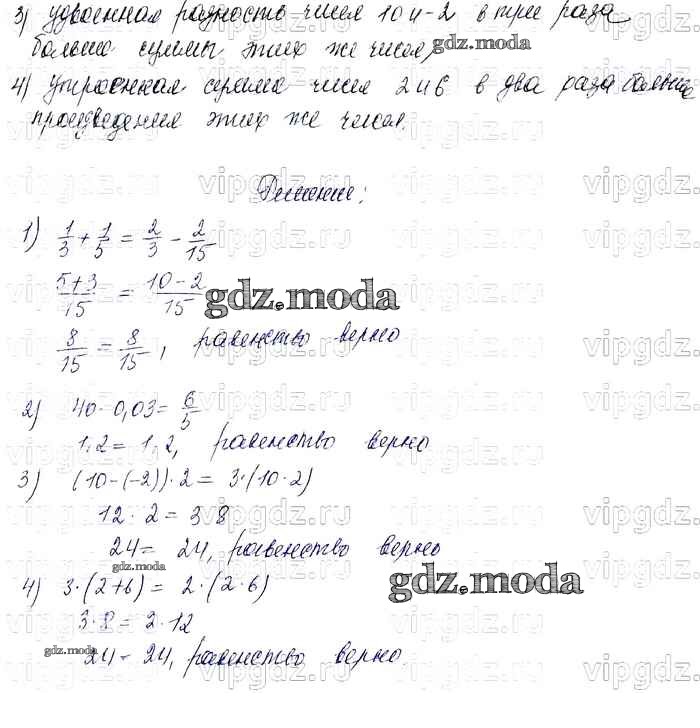 3) удвоенная разность чисел 10 и -2 в три раза
больше суммы этих же чисел;
gdz.moda
4) утроенная сумма чисел 2 и 6 в два раза больше
произведения этих же чисел.
vipgdz.ru vipgdz.ru vipgdz.ru
Решение:
1) 1/3 + 1/5 = 2/3 - 2/15
(5+3)/15 = (10-2)/15
gdz.moda
8/15 = 8/15, равенство верно
2) 40 · 0,03 = 6/5
1,2 = 1,2, равенство верно
3) (10-(-2))·2 = 3·(10·2)
12 · 2 = 3 8
24 = 24, равенство верно
gdz.moda
4) 3·(2+6) = 2·(2·6)
gdz.moda
3·8 = 2·12
gdz.moda
24 = 24, равенство верно.